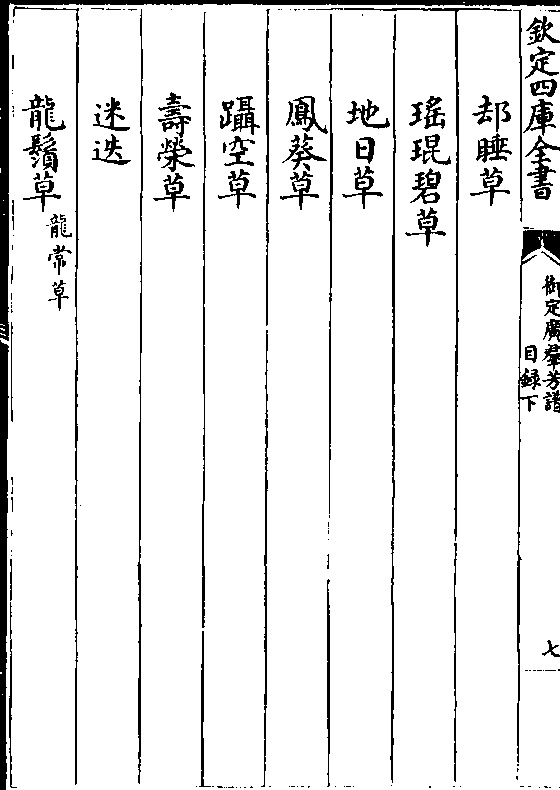 欽定四庫全書
御定廣羣芳譜
目録下
七
却睡草
瑤琨碧草
地日草
鳳葵草
躡空草
壽榮草
迷迭
龍鬚草龍常草